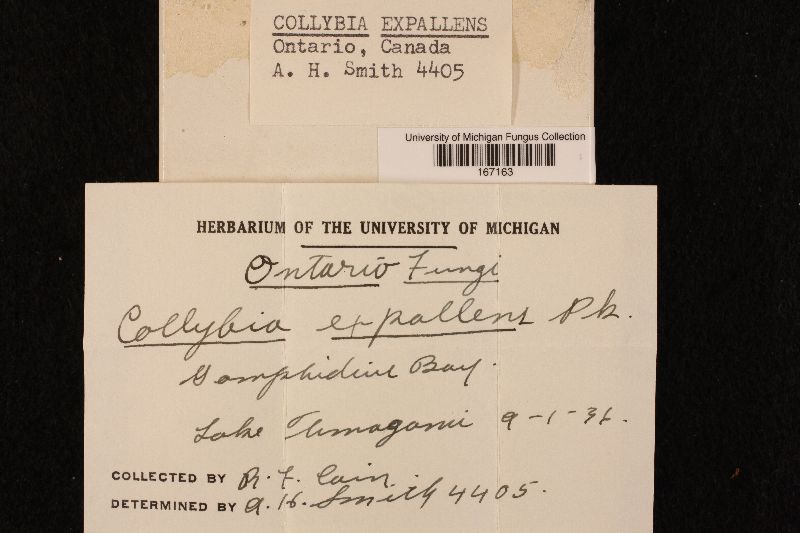 COLLYBIA EXPALLENS
Ontario, Canada
A. H. Smith 4405
University of Michigan Fungus Collection
167163
HERBARIUM OF THE UNIVERSITY OF MICHIGAN
Ontario Fungi
Collybia expallens Pk.
Gomphidius Bay.
Lake Timagami 9-1-36.
COLLECTED BY R. F. Cain
DETERMINED BY A. H. Smith 4405.